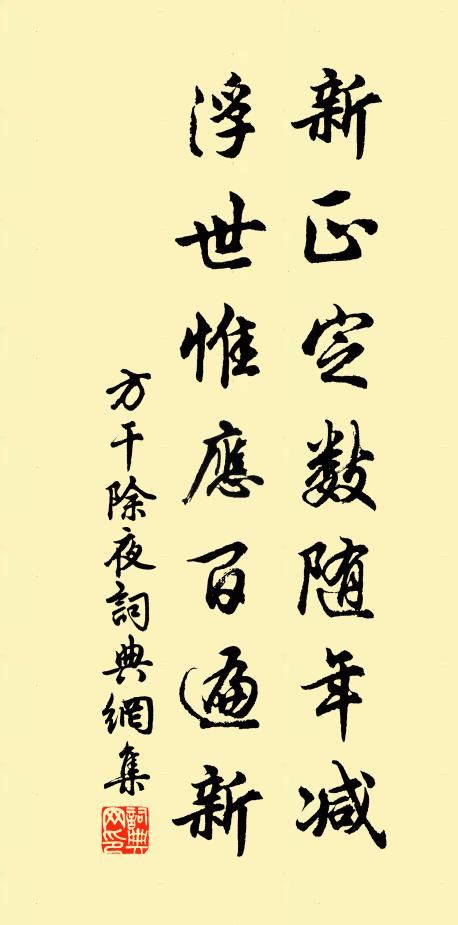 新正定数随年减
浮世惟應百遍新
方干除夜詞典網集
詞典网印